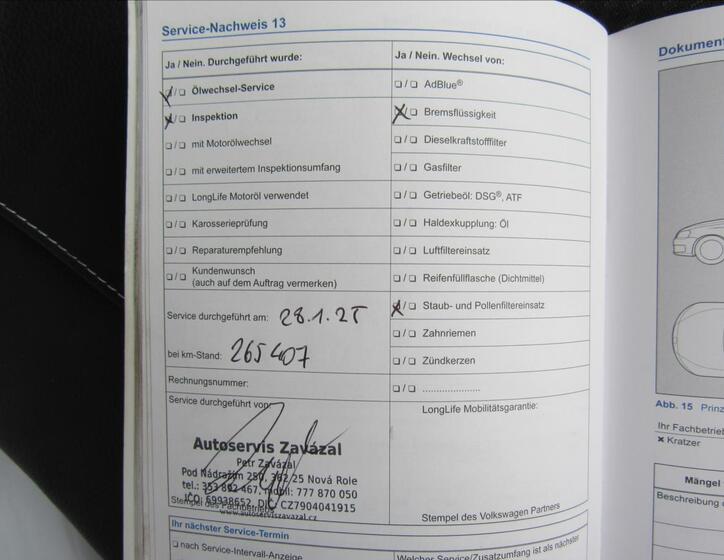 Service-Nachweis 13
Ja / Nein. Durchgeführt wurde:
Ölwechsel-Service
Inspektion
mit Motorölwechsel
mit erweitertem Inspektionsumfang
LongLife Motoröl verwendet
Karosserieprüfung
Reparaturempfehlung
Kundenwunsch
(auch auf dem Auftrag vermerken)
Service durchgeführt am: 28.1.25
bei km-Stand: 265407
Rechnungsnummer:
Service durchgeführt von:
Autoservis Zavázal
Petr Zavázal
Pod Nádražím 250, 362 25 Nová Role
tel.: 353 892 467, mobil: 777 870 050
IČO: 69938652, DIČ: CZ7904041915
www.autoserviszavazal.cz
Stempel des Fachbetriebs
Ja / Nein. Wechsel von:
AdBlue®
Bremsflüssigkeit
Dieselkraftstofffilter
Gasfilter
Getriebeöl: DSG®, ATF
Haldexkupplung: Öl
Luftfiltereinsatz
Reifenfüllflasche (Dichtmittel)
Staub- und Pollenfiltereinsatz
Zahnriemen
Zündkerzen
.....................
LongLife Mobilitätsgarantie:
Stempel des Volkswagen Partners
Ihr nächster Service-Termin
nach Service-Intervall-Anzeige
Welcher Service/Zusatzumfang ist als nächstes
Dokument
Abb. 15 Prinz
Ihr Fachbetrieb
× Kratzer
Mängel
Beschreibung